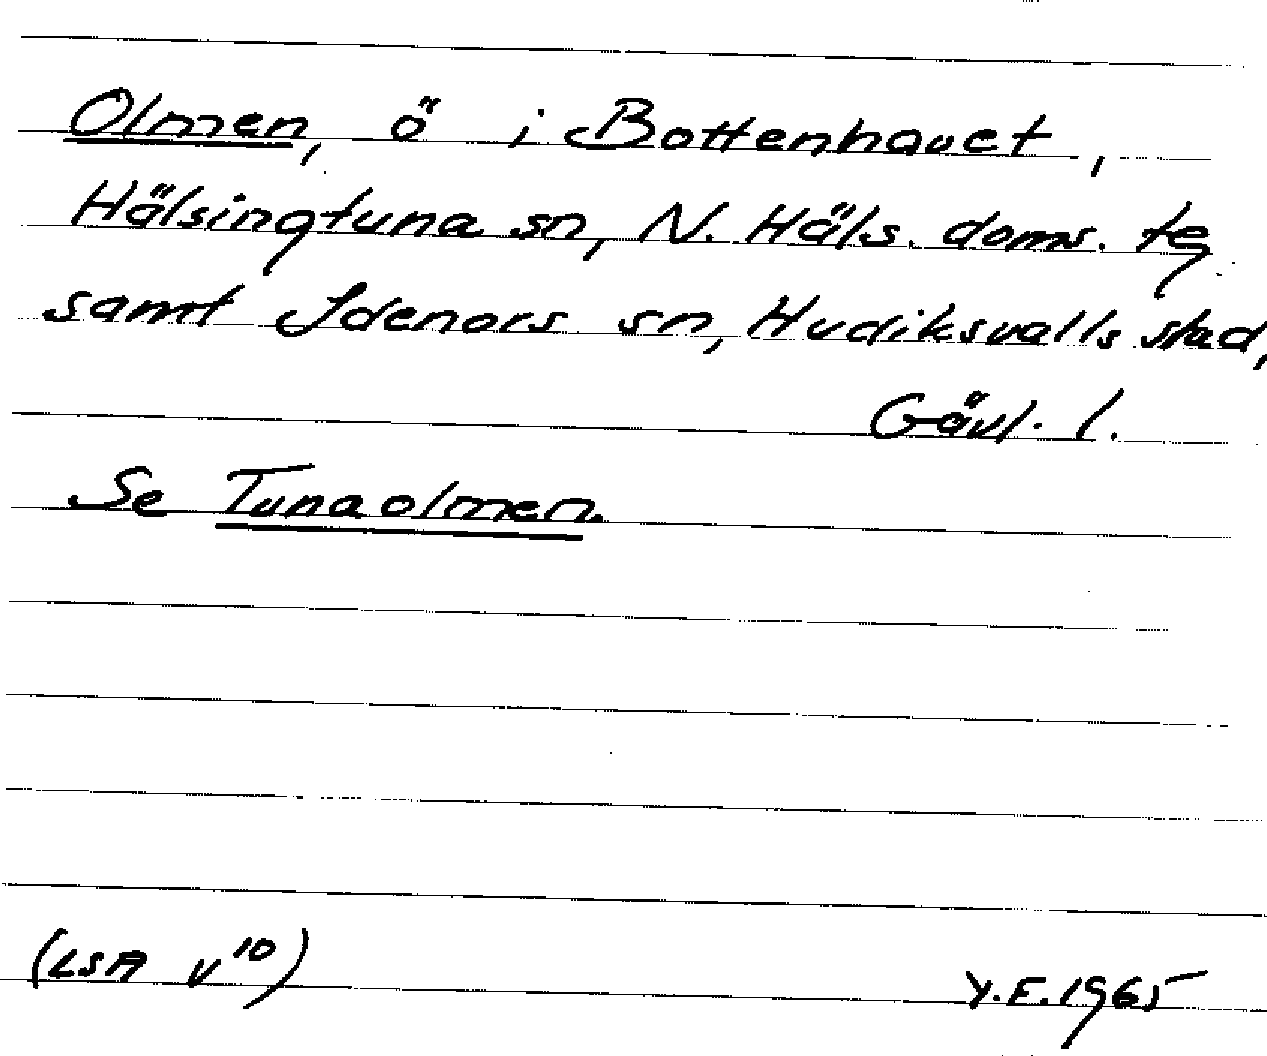 Olmen, ö i Bottenhavet,
Hälsingtuna sn, N. Häls. doms. tg
samt Idenors sn, Hudiksvalls stad,
Gävl. l.
Se Tunaolmen.
(LSA V¹⁰)
Y.E. 1965